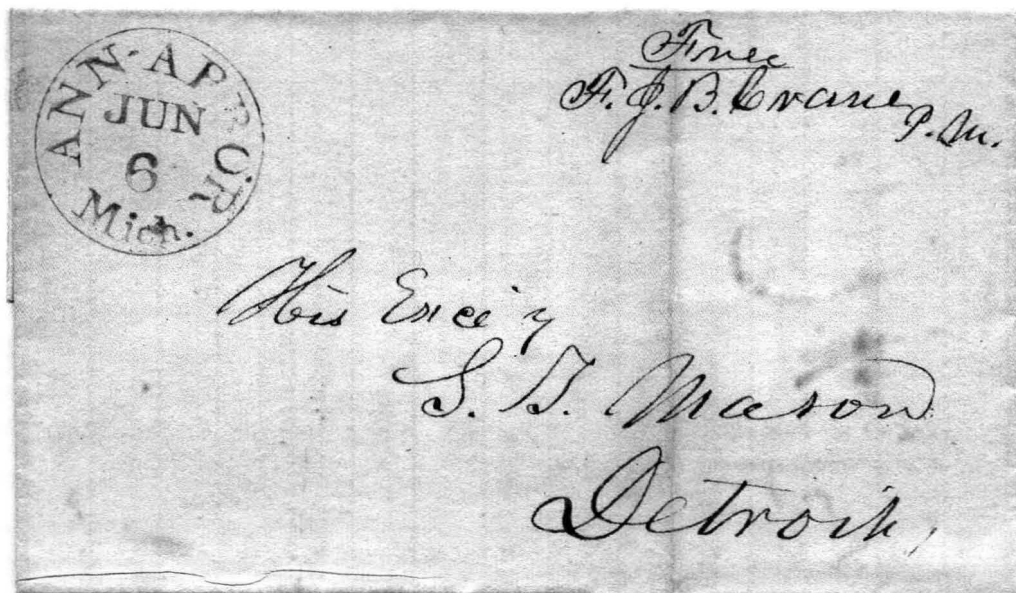 ANN-ARBOR
JUN
6
Mich.
Free
F. J. B. Crane
P.M.
His Exce'y
S. T. Mason
Detroit,